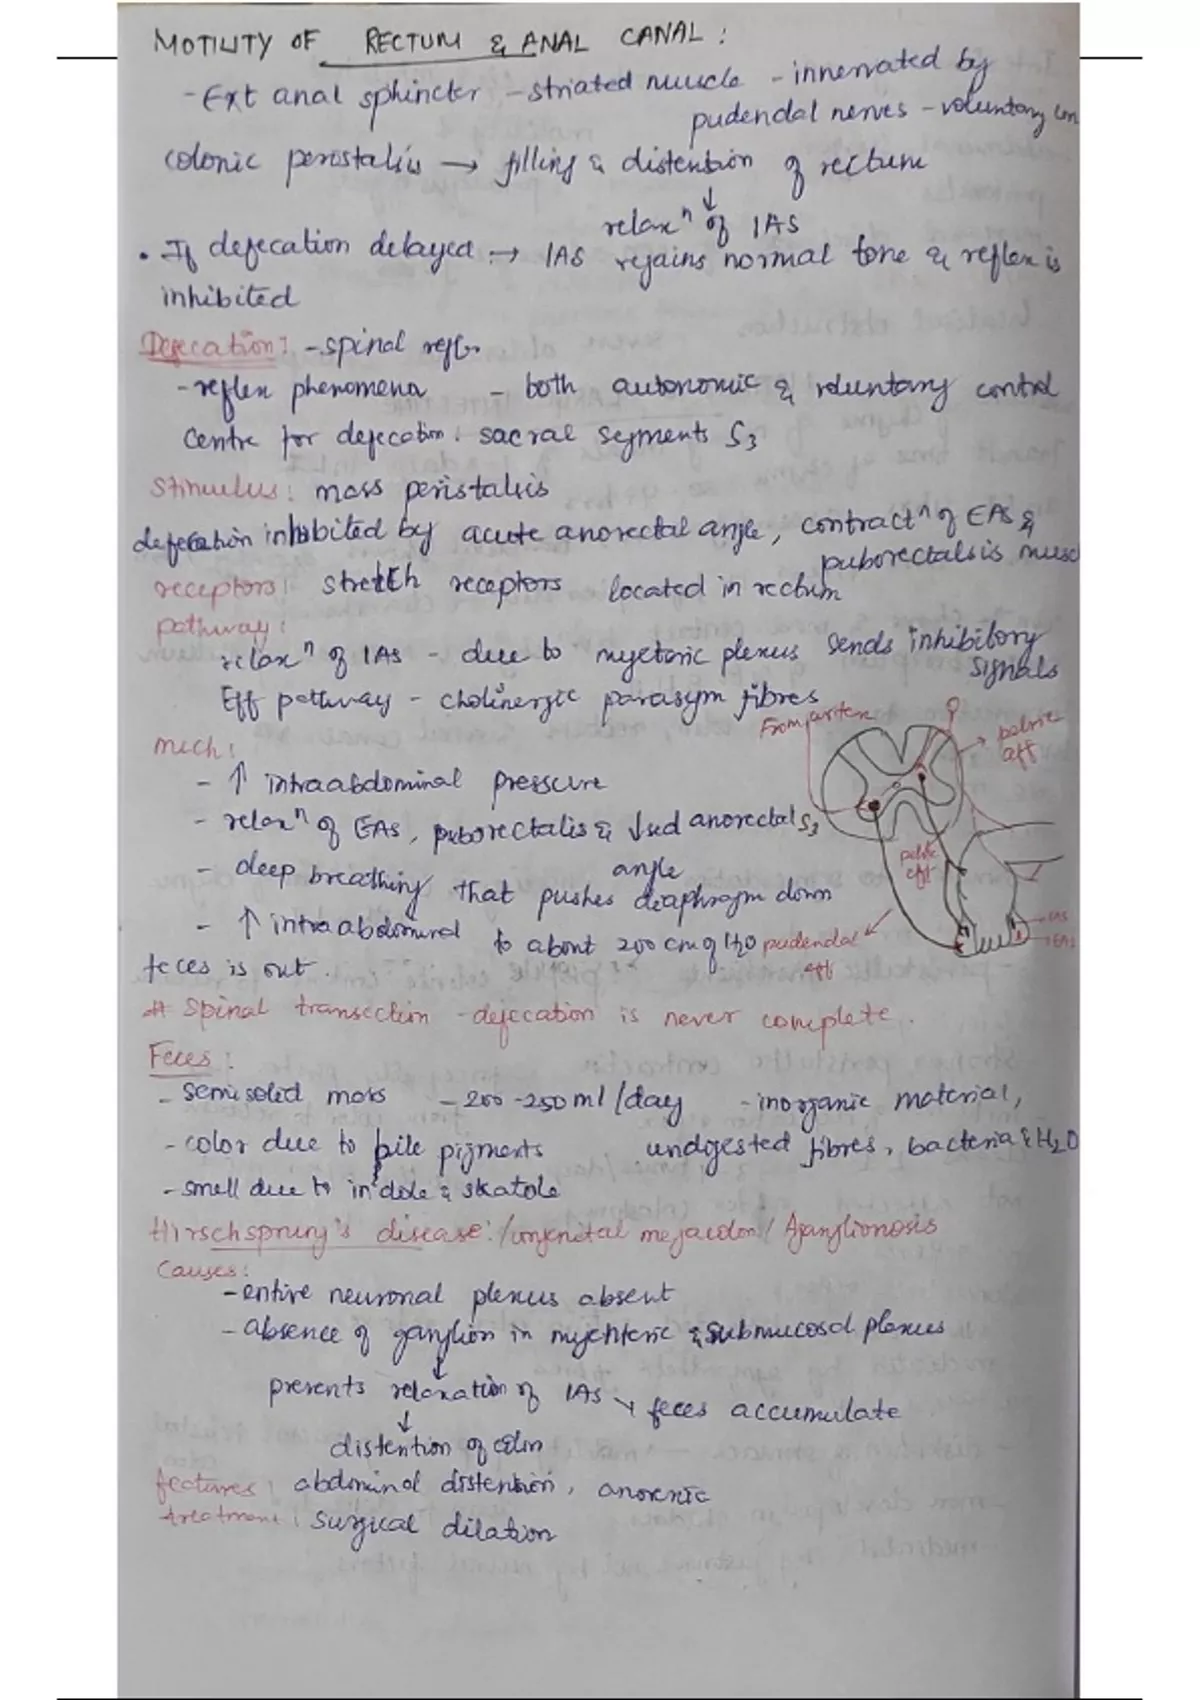 MOTILITY OF RECTUM & ANAL CANAL :
- Ext anal sphincter - striated muscle - innervated by
pudendal nerves - voluntary con
colonic peristalsis → filling & distention of rectum
↓
relaxⁿ of IAS
• If defecation delayed → IAS regains normal tone & reflex is
inhibited
Defecation: - spinal reflex
- reflex phenomena - both autonomic & voluntary control
Centre for defecation: sacral segments S3
Stimulus: mass peristalsis
defecation inhibited by acute anorectal angle, contractⁿ of EAS &
puborectalsis musc
receptors: stretch receptors located in rectum
pathway:
relaxⁿ of IAS - due to myetoric plexus sends inhibitory
signals
Eff pathway - cholinergic parasym fibres
From cortex
pelvic
aff
mech:
- ↑ intraabdominal pressure
- relaxⁿ of EAS, puborectalis & ↓sed anorectal
angle
S3
pelvic
eff
- deep breathing that pushes diaphragm down
- ↑ intraabdominal to about 200 cm of H2O
pudendal
eff
IAS
EAS
feces is out.
# Spinal transection - defecation is never complete.
Feces:
- semisolid mass - 200-250ml/day - inorganic material,
- color due to bile pigments undigested fibres, bacteria & H2O
- smell due to indole & skatole
Hirschsprung's disease: /congenital megacolon/ Aganglionosis
Causes:
- entire neuronal plexus absent
- absence of ganglion in myenteric & submucosal plexus
↓
prevents relaxation of IAS → feces accumulate
↓
distention of colon
features: abdominal distension, anorexic
treatment: surgical dilation